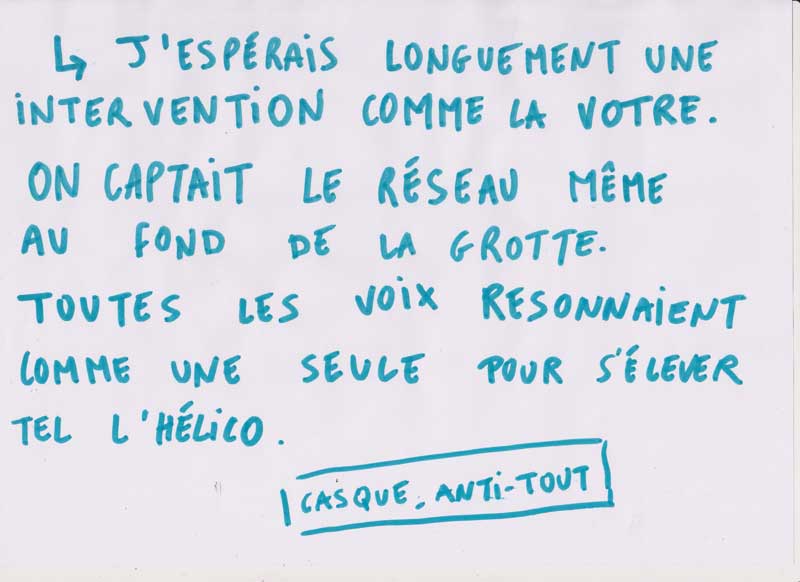 ↳ J'ESPÉRAIS LONGUEMENT UNE
INTERVENTION COMME LA VOTRE.
ON CAPTAIT LE RÉSEAU MÊME
AU FOND DE LA GROTTE.
TOUTES LES VOIX RESONNAIENT
COMME UNE SEULE POUR S'ÉLEVER
TEL L'HÉLICO.
CASQUE. ANTI-TOUT